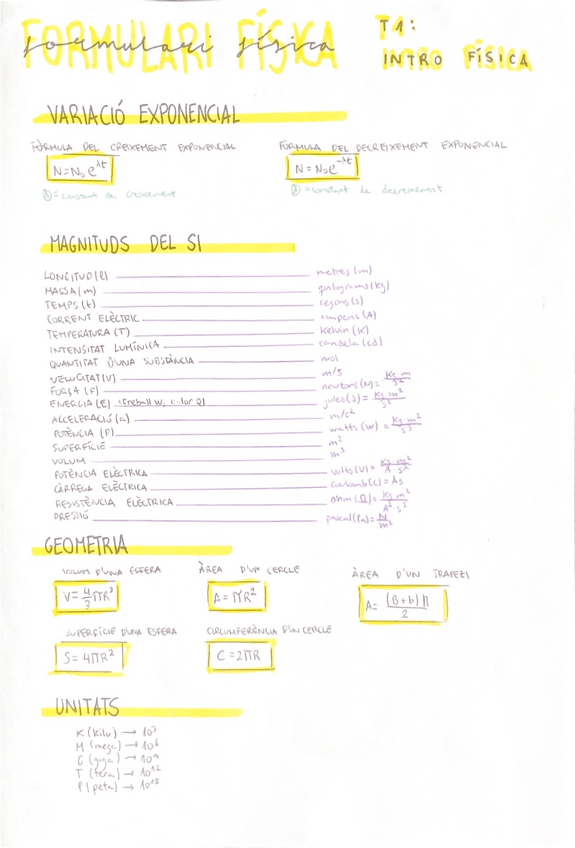 FORMULARI FÍSICA
formulari física
T1:
INTRO FÍSICA
VARIACIÓ EXPONENCIAL
FÓRMULA DEL CREIXEMENT EXPONENCIAL
N=N₀e^λt
λ=constant de creixement
FÓRMULA DEL DECREIXEMENT EXPONENCIAL
N=N₀e^-λt
λ=constant de decreixement
MAGNITUDS DEL SI
LONGITUD(l) metres (m)
MASSA(m) quilograms (kg)
TEMPS (t) segons (s)
CORRENT ELÈCTRIC amperis (A)
TEMPERATURA (T) Kelvin (K)
INTENSITAT LUMÍNICA candela (cd)
QUANTITAT D'UNA SUBSTÀNCIA mol
VELOCITAT(V) m/s
FORÇA (F) newtons(N)= kg m/s²
ENERGIA(E) (treball W, calor Q) joules(J)= kg m²/s²
ACCELERACIÓ(a) m/s²
POTÈNCIA (P) watts (W) = kg m²/s³
SUPERFÍCIE m²
VOLUM m³
POTÈNCIA ELÈCTRICA volts(V)= kg m²/A·s³
CÀRREGA ELÈCTRICA coulomb(C)= As
RESISTÈNCIA ELÈCTRICA ohm(Ω)= kg m²/A²·s³
PRESSIÓ pascal(Pa)= N/m²
GEOMETRIA
VOLUM D'UNA ESFERA
V= 4/3 πR³
ÀREA D'UN CERCLE
A= πR²
ÀREA D'UN TRAPEZI
A= (B+b)h/2
SUPERFÍCIE D'UNA ESFERA
S= 4πR²
CIRCUMFERÈNCIA D'UN CERCLE
C=2πR
UNITATS
K (kilo) → 10³
M (mega) → 10⁶
G (giga) → 10⁹
T (tera) → 10¹²
P (peta) → 10¹⁵